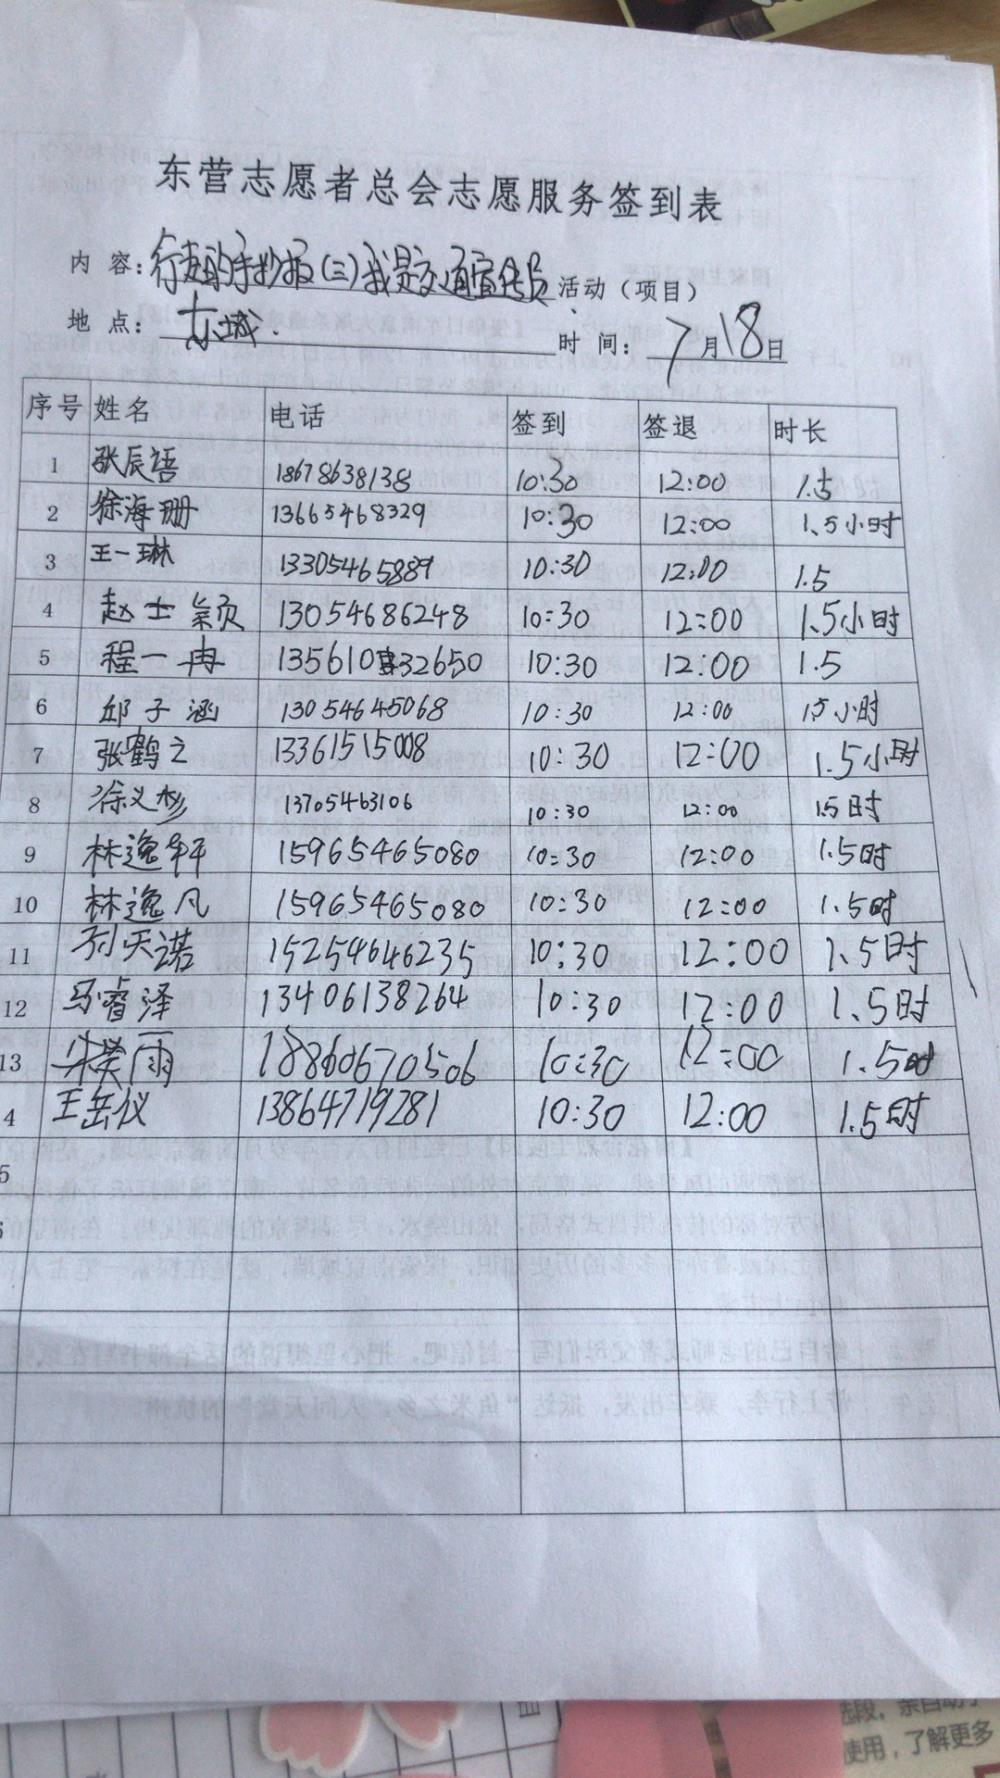 东营志愿者总会志愿服务签到表
内 容：行走的手抄报（三）我是交通宣传员 活动（项目）
地 点： 东城. 时 间： 7月18日
序号 姓名 电话 签到 签退 时长
1 张辰语 18678638138 10:30 12:00 1.5
2 徐海珊 13665468329 10:30 12:00 1.5小时
3 王一琳 13305465889 10:30 12:00 1.5
4 赵士颖 13054686248 10:30 12:00 1.5小时
5 程一冉 135610 32650 10:30 12:00 1.5
6 邱子涵 13054645068 10:30 12:00 15小时
7 张鹤之 13361515008 10:30 12:00 1.5小时
8 徐义杉 13705463106 10:30 12:00 15时
9 林逸轩 15965465080 10:30 12:00 1.5时
10 林逸凡 15965465080 10:30 12:00 1.5时
11 孙天诺 15254646235 10:30 12:00 1.5时
12 马睿泽 13406138264 10:30 12:00 1.5时
13 雨 18860670506 10:30 12:00 1.5时
4 王岳仪 13864719281 10:30 12:00 1.5时
5
6
选段，亲自动手
使用，了解更多